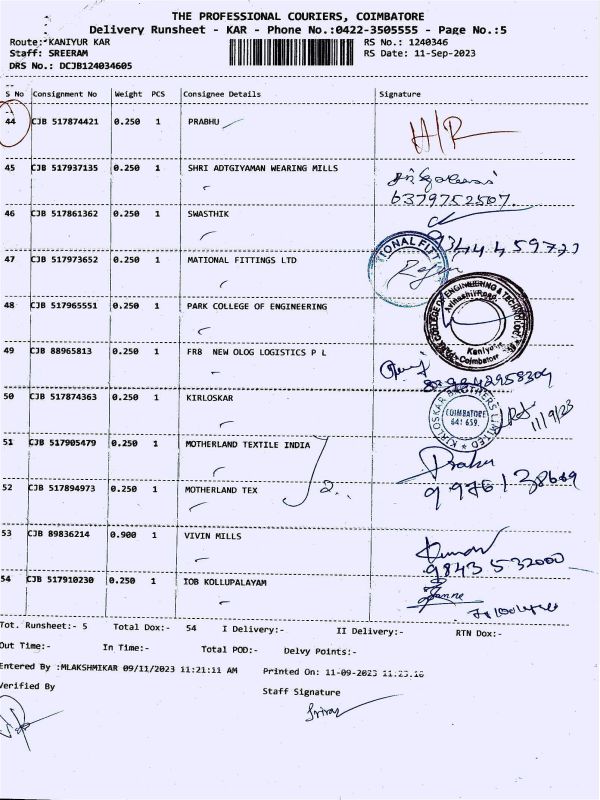 THE PROFESSIONAL COURIERS, COIMBATORE
Delivery Runsheet - KAR - Phone No.:0422-3505555 - Page No.:5
Route: KANIYUR KAR RS No.: 1240346
Staff: SREERAM RS Date: 11-Sep-2023
DRS No.: DCJB124034605
S No Consignment No Weight PCS Consignee Details Signature
44 CJB 517874421 0.250 1 PRABHU H/R
45 CJB 517937135 0.250 1 SHRI ADTGIYAMAN WEARING MILLS
6379752507.
46 CJB 517861362 0.250 1 SWASTHIK
47 CJB 517973652 0.250 1 MATIONAL FITTINGS LTD
48 CJB 517965551 0.250 1 PARK COLLEGE OF ENGINEERING
49 CJB 88965813 0.250 1 FR8 NEW OLOG LOGISTICS P L
50 CJB 517874363 0.250 1 KIRLOSKAR
KIRLOSKAR BROTHERS LIMITED
COIMBATORE
641 659.
11/9/23
51 CJB 517905479 0.250 1 MOTHERLAND TEXTILE INDIA
52 CJB 517894973 0.250 1 MOTHERLAND TEX
53 CJB 89836214 0.900 1 VIVIN MILLS
9843532000
54 CJB 517910230 0.250 1 IOB KOLLUPALAYAM
Tot. Runsheet:- 5 Total Dox:- 54 I Delivery:- II Delivery:- RTN Dox:-
Out Time:- In Time:- Total POD:- Delvy Points:-
Entered By :MLAKSHMIKAR 09/11/2023 11:21:11 AM Printed On: 11-09-2023
Verified By Staff Signature